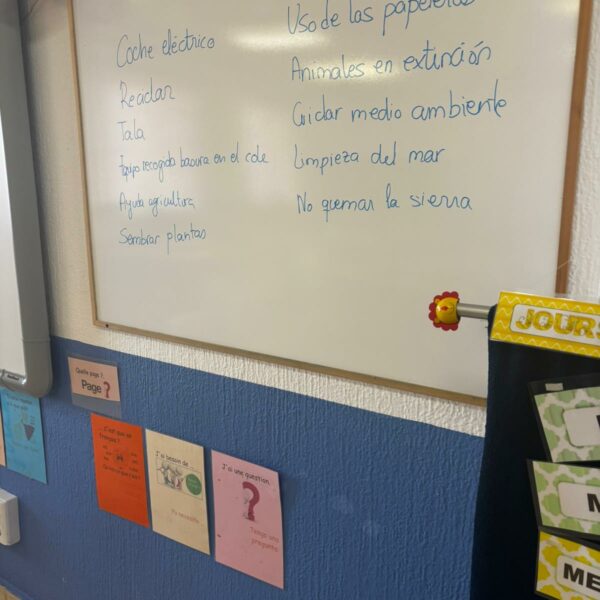 Coche eléctrico
Reciclar
Tala
Equipo recogida basura en el cole
Ayuda agricultura
Sembrar plantas
Uso de las papeleras
Animales en extinción
Cuidar medio ambiente
Limpieza del mar
No quemar la sierra
JOURS
ME
Quelle page ?
Page ?
J'ai besoin de
Yo necesito
J'ai une question
?
Tengo una pregunta